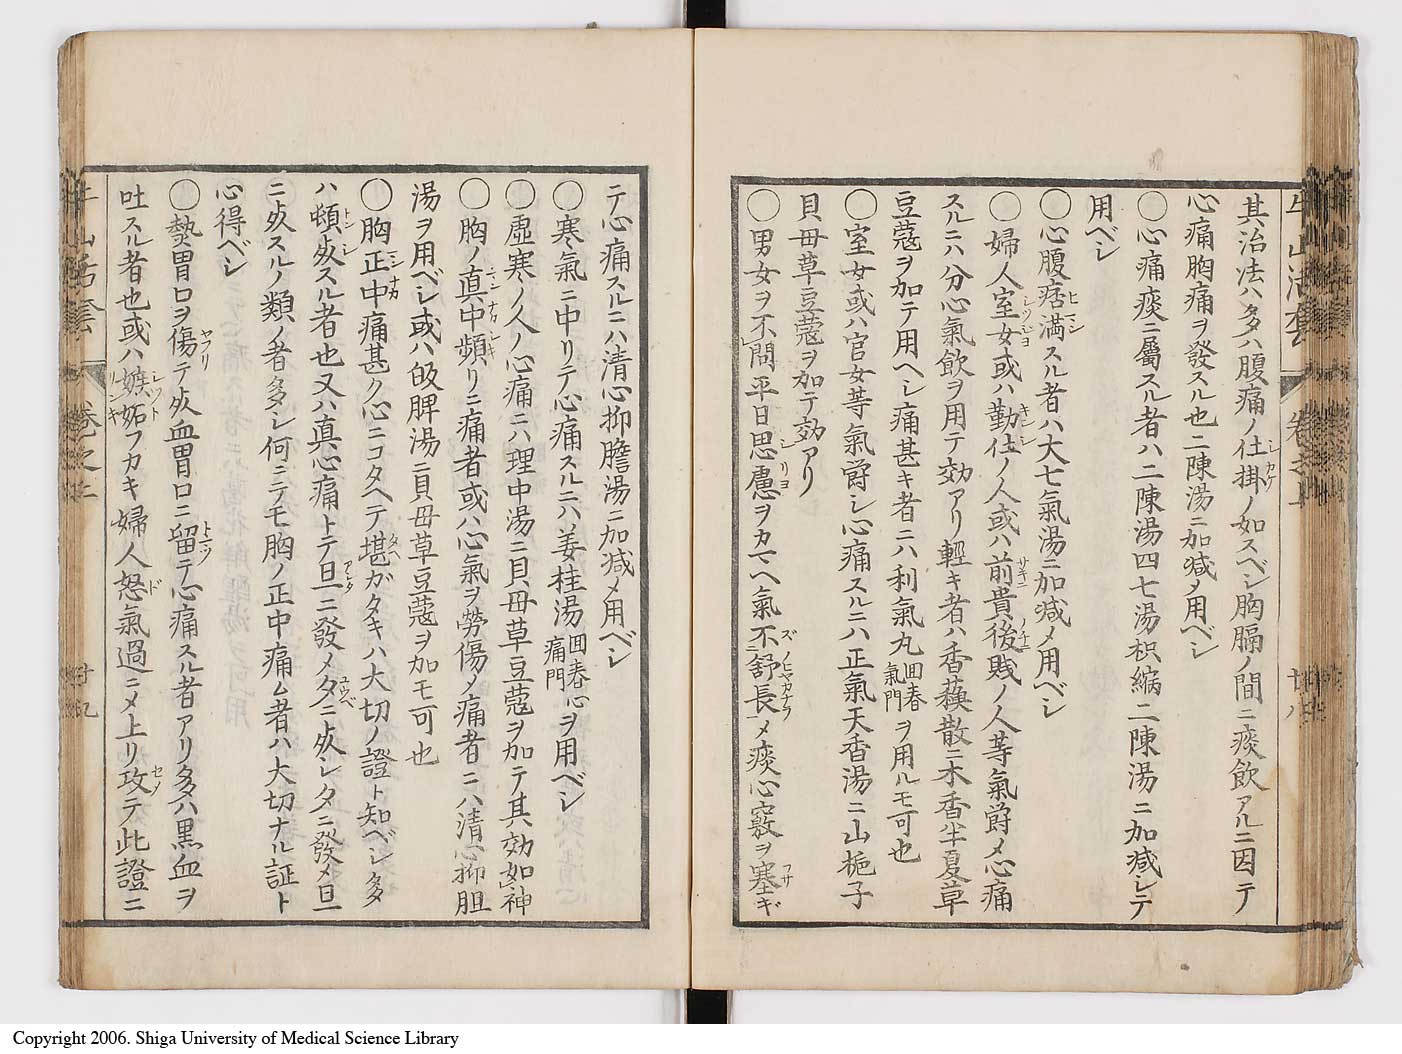 其治法ハ多ハ腹痛ノ仕掛ノ如スベシ胸膈ノ間ニ痰飲アルニ因テ
心痛胸痛ヲ發スル也二陳湯ニ加減メ用ベシ
○心痛痰ニ屬スル者ハ二陳湯四七湯枳縮二陳湯ニ加減シテ
用ベシ
○心腹痞満スル者ハ大七氣湯ニ加減メ用ベシ
○婦人室女或ハ勤仕ノ人或ハ前貴後賎ノ人等氣爵メ心痛
スルニハ分心氣飲ヲ用テ効アリ輕キ者ハ香蘓散ニ木香半夏草
豆蔻ヲ加テ用ヘシ痛甚キ者ニハ利氣丸回春氣門ヲ用ルモ可也
○室女或ハ官女等氣爵シ心痛スルニハ正氣天香湯ニ山梔子
貝母草豆蔻ヲ加テ効アリ
○男女ヲ不問平日思慮ヲカマヘ氣不舒長メ痰心竅ヲ塞ギ
テ心痛スルニハ清心抑膽湯ニ加減メ用ベシ
○寒氣ニ中リテ心痛スルニハ姜桂湯回春心痛門ヲ用ベシ
○虚寒ノ人ノ心痛ニハ理中湯ニ貝母草豆蔻ヲ加テ其効如神
○胸ノ真中頻リニ痛者或ハ心氣ヲ勞傷ノ痛者ニハ清心抑胆
湯ヲ用ベシ或ハ皈脾湯ニ貝母草豆蔻ヲ加モ可也
○胸正中痛甚ク心ニコタヘテ堪ガタキハ大切ノ證ト知ベシ多
ハ頓死スル者也又ハ真心痛トテ旦ニ發メタニ死シタニ發メ旦
ニ死スルノ類ノ者多シ何ニテモ胸ノ正中痛ム者ハ大切ナル証ト
心得ベシ
○熱胃口ヲ傷テ死血胃口ニ留テ心痛スル者アリ多ハ黒血ヲ
吐スル者也或ハ嫉妬フカキ婦人怒氣過ニメ上リ攻テ此證ニ
牛山活套
卷之上
廿八
牛山活套
卷之上
廿九
Copyright 2006. Shiga University of Medical Science Library